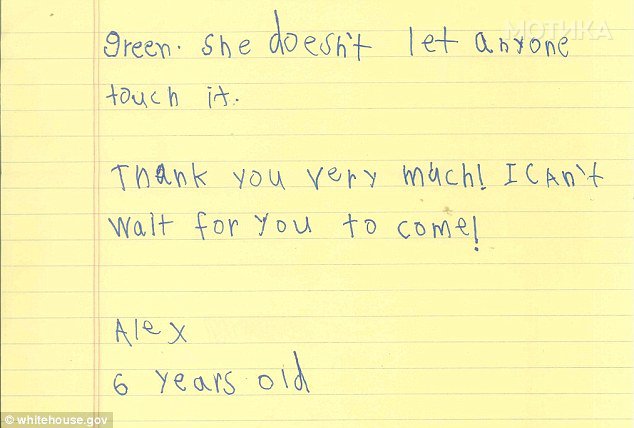 МОТИКА
green. she doesn't let anyone
touch it.
Thank you very much! I CAn't
Wait for you to come!
Alex
6 years old
© whitehouse.gov